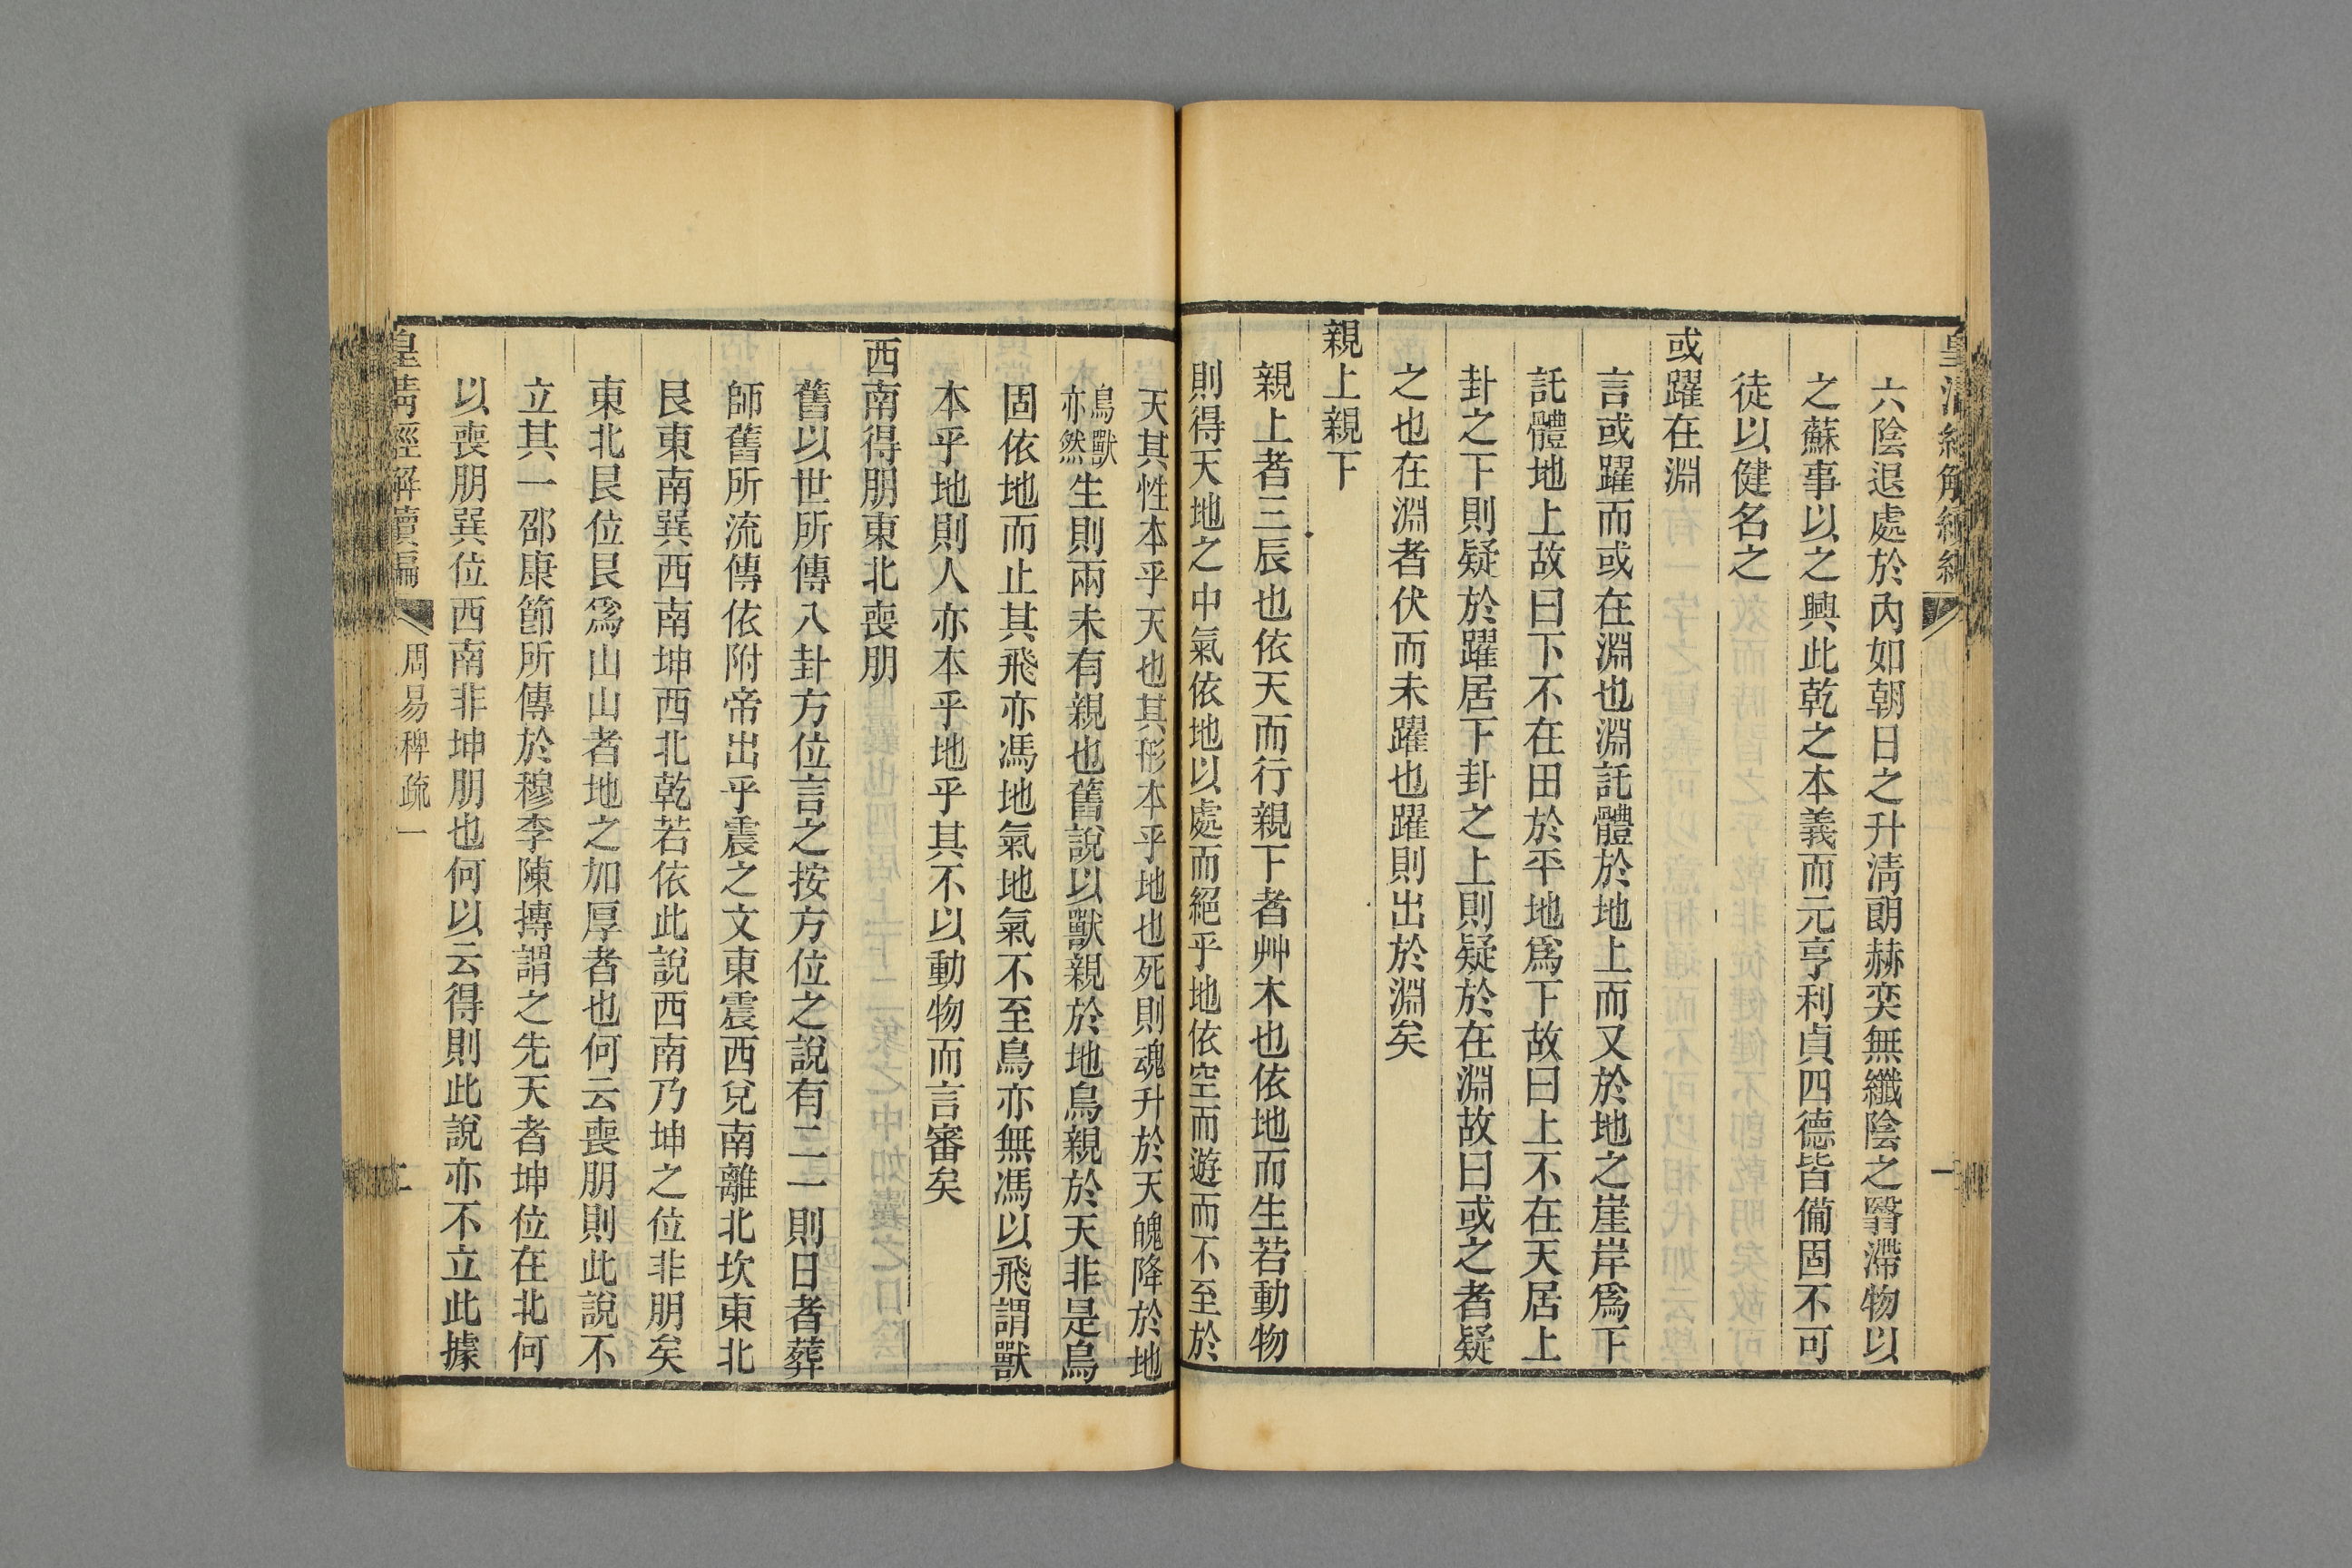 六陰退處於內如朝日之升清朗赫奕無纖陰之翳滯物以
之蘇事以之興此乾之本義而元亨利貞四德皆備固不可
徒以健名之
或躍在淵
言或躍而或在淵也淵託體於地上而又於地之崖岸爲下
託體地上故曰下不在田於平地爲下故曰上不在天居上
卦之下則疑於躍居下卦之上則疑於在淵故曰或之者疑
之也在淵者伏而未躍也躍則出於淵矣
親上親下
親上者三辰也依天而行親下者艸木也依地而生若動物
則得天地之中氣依地以處而絕乎地依空而遊而不至於
天其性本乎天天也其形本乎地也死則魂升於天魄降於地
鳥獸亦然生則兩未有親也舊說以獸親於地鳥親於天非是鳥
固依地而止其飛亦馮地氣地氣不至鳥亦無馮以飛謂獸
本乎地則人亦本乎地乎其不以動物而言審矣
西南得朋東北喪朋
舊以世所傳八卦方位言之按方位之說有二一則日者葬
師舊所流傳依附帝出乎震之文東震西兌南離北坎東北
艮東南巽西南坤西北乾若依此說西南乃坤之位非朋矣
東北艮位艮爲山山者地之加厚者也何云喪朋則此說不
立其一邵康節所傳於穆李陳摶謂之先天者坤位在北何
以喪朋巽位西南非坤朋也何以云得則此說亦不立此據
皇清經解續編
周易稗疏一
二